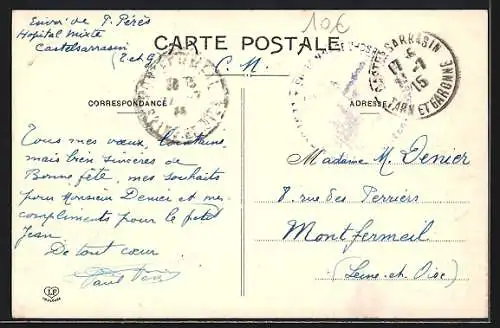 Envoi de P. Pérès
Hôpital Mixte
Castelsarrasin
(T et G)
10€
CARTE POSTALE
C. M.
CORRESPONDANCE
ADRESSE
CASTELSARRASIN
17
7
15
TARN ET GARONNE
Tous mes vœux, lointains,
mais bien sincères de
Bonne fête, mes souhaits
pour Monsieur Denier et mes
compliments pour le petit
Jean.
De tout cœur
Paul
Madame M. Denier
8 rue des Perriers
Montfermeil
(Seine-et-Oise)